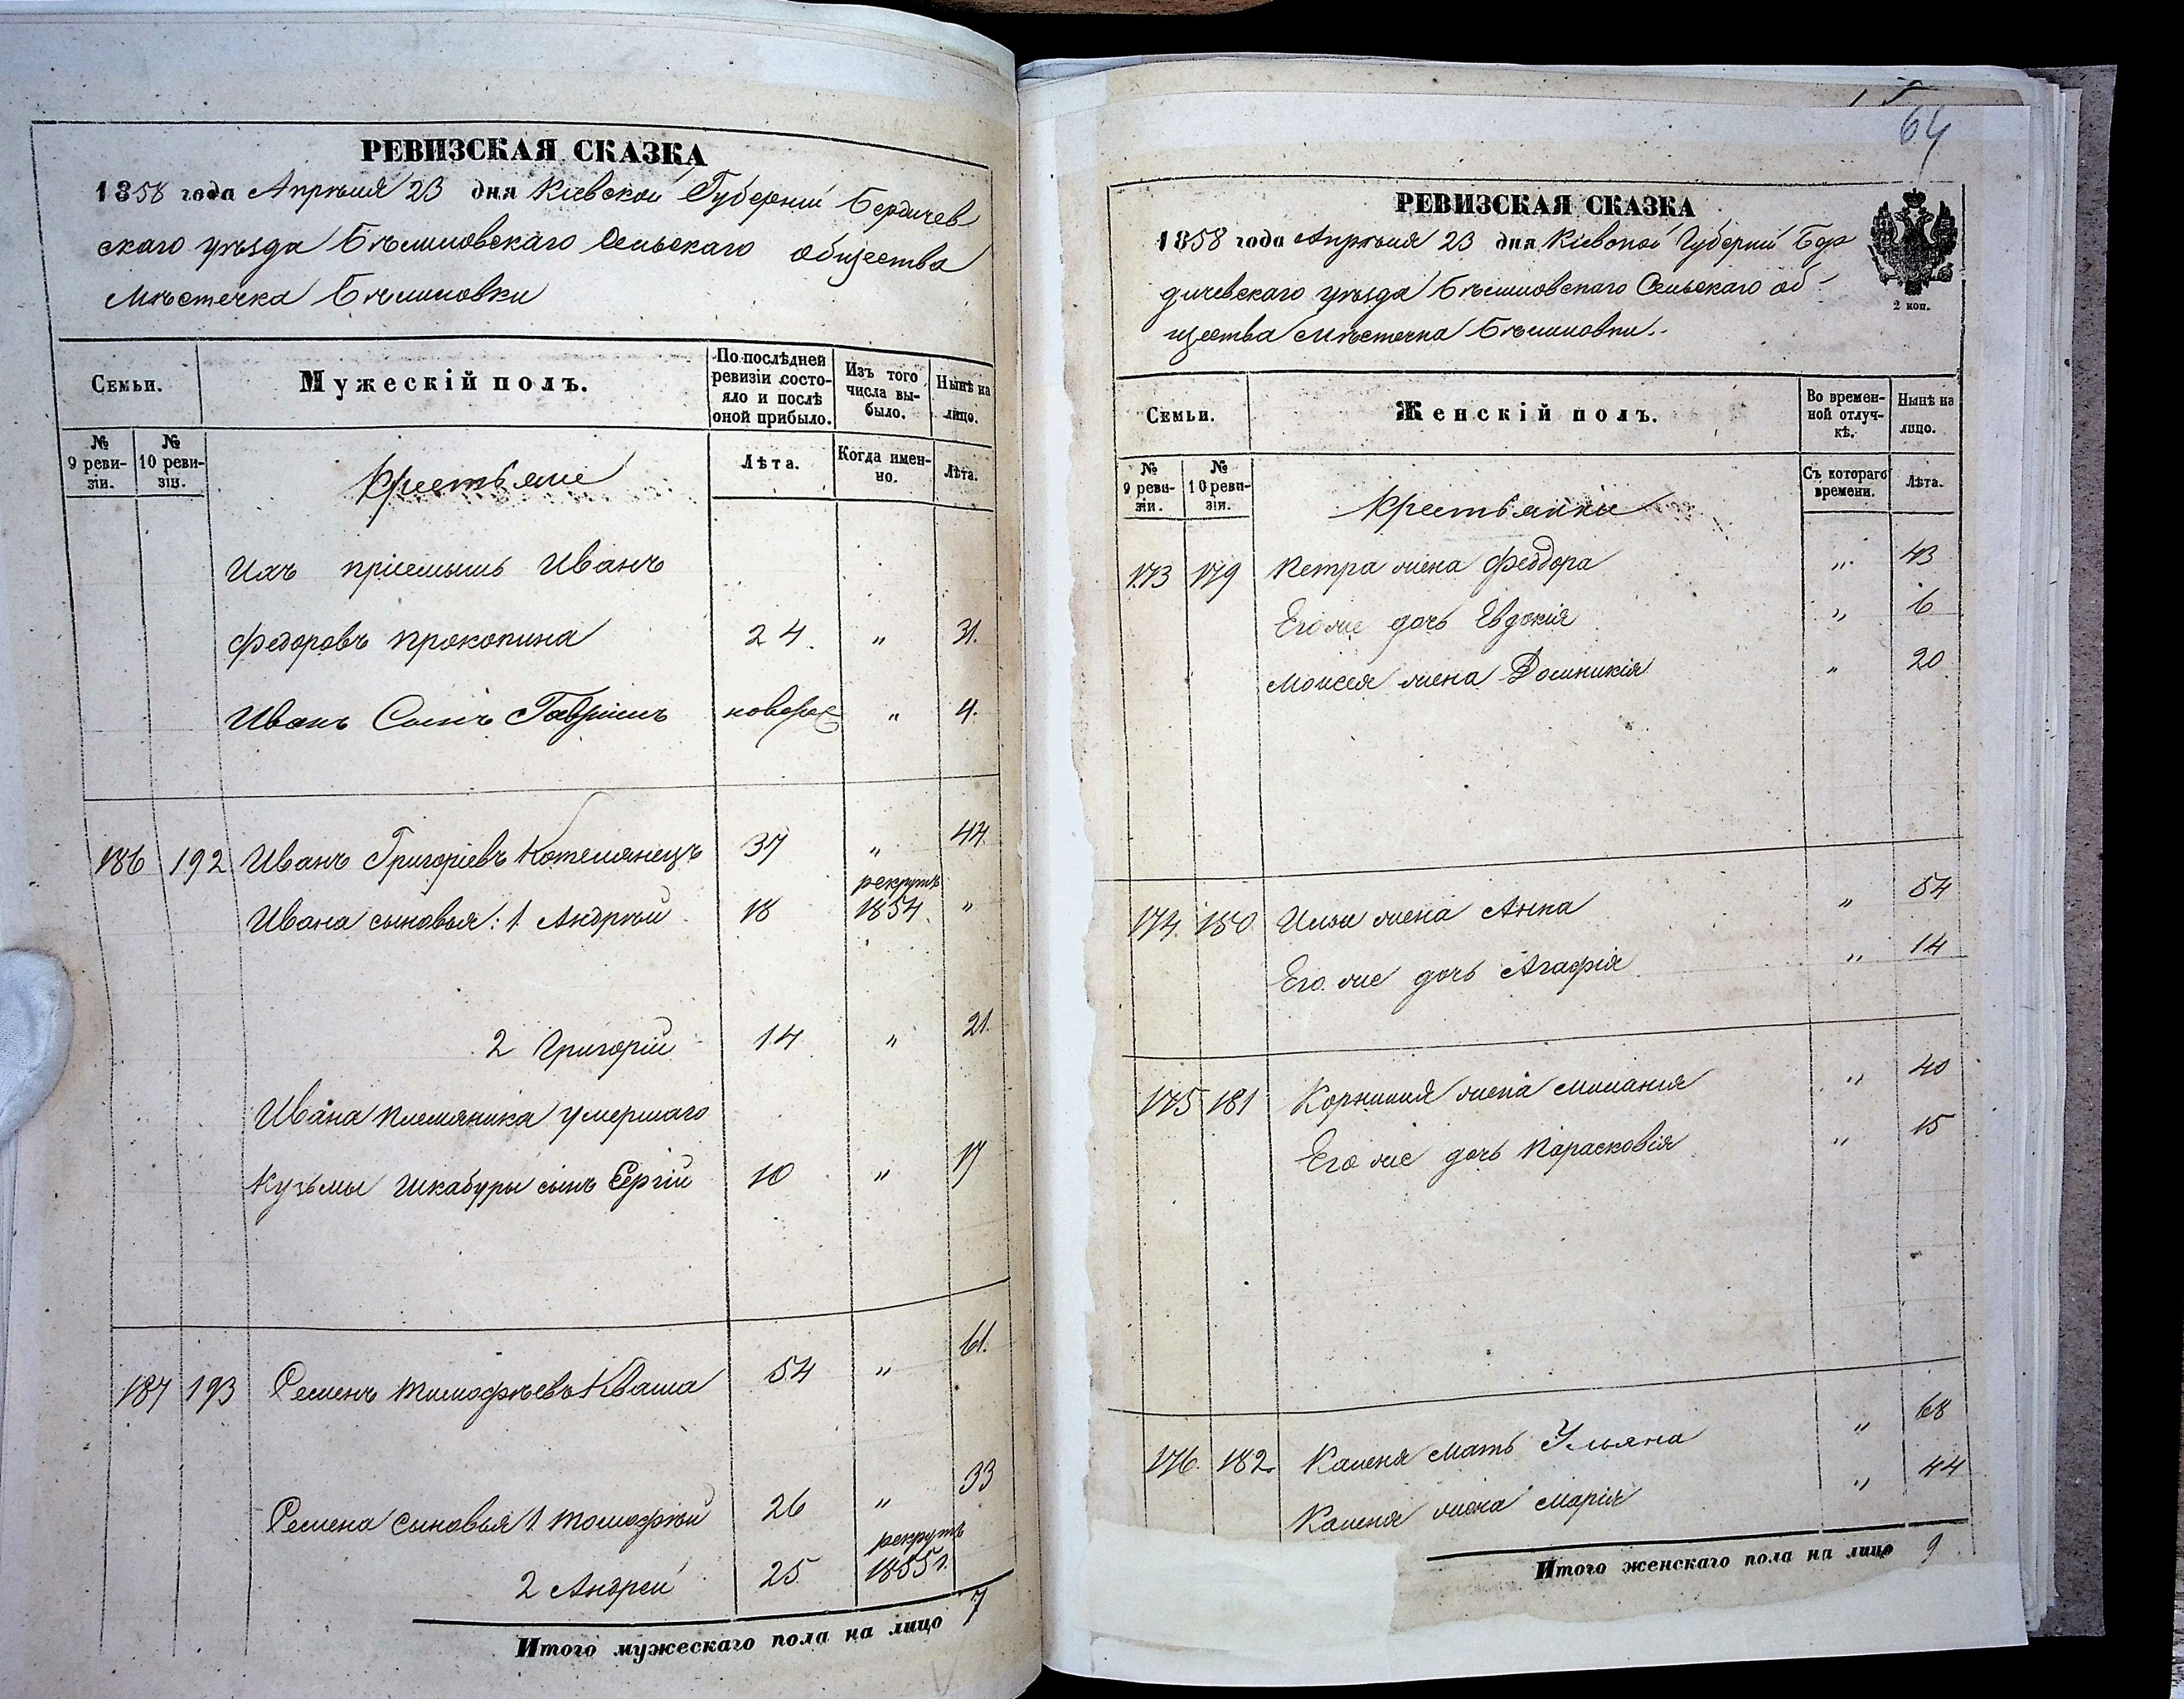 РЕВИЗСКАЯ СКАЗКА
1858 года Апрѣля 23 дня Кіевской Губерніи Бердичев
скаго уѣзда Бѣлиловскаго Сельскаго общества
Мѣстечка Бѣлиловки
Семьи.
Мужескій полъ.
По послѣдней
ревизіи состо-
яло и послѣ
оной прибыло.
Изъ того
числа вы-
было.
Нынѣ на
лицо.
№
9 реви-
зіи.
№
10 реви-
зіи.
Крестьяне
Лѣта.
Когда имен-
но.
Лѣта.
Ихъ пріемышъ Иванъ
Федоровъ Прокопина 24. " 31.
Иванъ Сынъ Гаврилъ новорож " 4.
186 192 Иванъ Григоріевъ 37 " 44.
Ивана сыновья: 1 Андрѣй 18 рекрутъ 1854. "
2 Григорій 14 " 21.
Ивана племяника умершаго
Кузьмы Шкабуры сынъ Сергій 10 " 17
187 193 Семенъ Тимофѣевъ Кваша 54 " 61.
Семена Сыновья 1 Тимофѣй 26 " 33
2 Андрей 25 рекрутъ 1855 г.
Итого мужескаго пола на лицо 7
64
РЕВИЗСКАЯ СКАЗКА
1858 года Апрѣля 23 дня Кіевской Губерніи Бер
дичевскаго уѣзда Бѣлиловскаго Сельскаго об-
щества Мѣстечка Бѣлиловки.
2 коп.
Семьи.
Женскій полъ.
Во времен-
ной отлуч-
кѣ.
Нынѣ на
лицо.
№
9 реви-
зіи.
№
10 реви-
зіи.
Крестьянки
Съ котораго
времени.
Лѣта.
173 179 Петра жена Феодора " 43
Его же дочь Евдокія " 6
Моисея жена Домникія " 20
174. 180 Ильи жена Анна " 54
Его же дочь Агафія " 14
175 181 Корнилия жена Миланія " 40
Его же дочь Парасковія " 15
176. 182. мать Ульяна " 68
жена Марія " 44
Итого женскаго пола на лицо 9